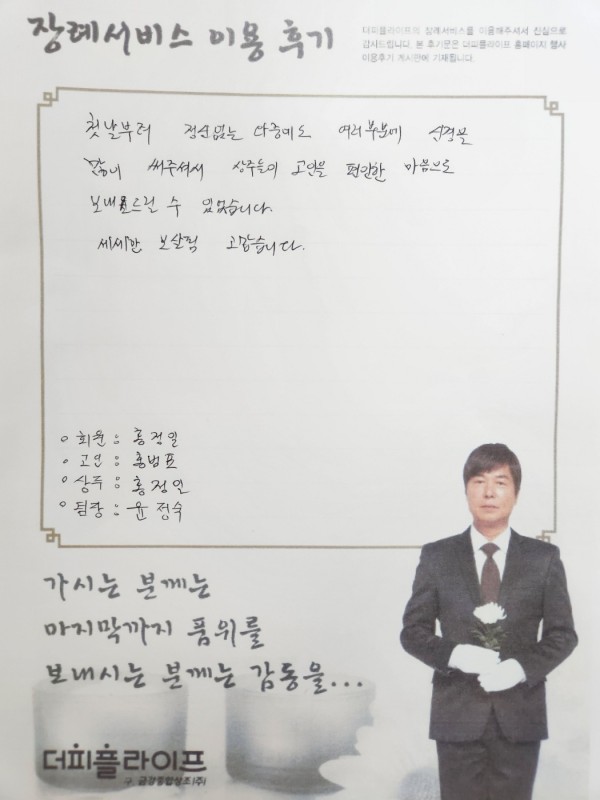 장례서비스 이용 후기
더피플라이프의 장례서비스를 이용해주셔서 진심으로
감사드립니다. 본 후기문은 더피플라이프 홈페이지 행사
이용후기 게시판에 기재됩니다.
첫날부터 정신없는 다중에도 여러부분에 신경을
많이 써주셔서 상주들이 고인을 편안한 마음으로
보내드릴 수 있었습니다.
세세한 보살핌 고맙습니다.
회원 : 홍정일
고인 : 홍범표
상주 : 홍정인
팀장 : 윤정숙
가시는 분께는
마지막까지 품위를
보내시는 분께는 감동을...
더피플라이프
구. 금강종합상조(주)